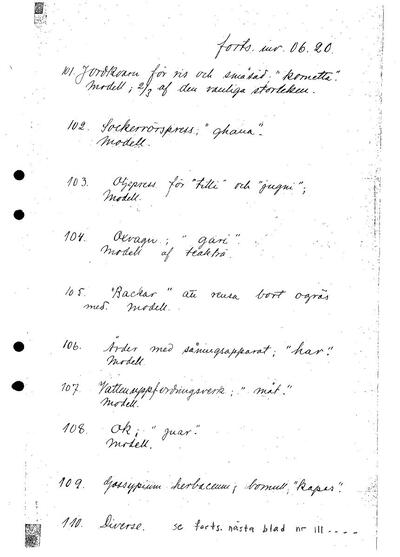 forts. inv. 06.20.
101. Jordkvarn för ris och småsäd, "kornetta".
Modell; 2/3 af den vanliga storleken.
102. Sockerrörspress; "ghana".
Modell.
103. Oljepress för "tilli" och "jugni";
Modell.
104. Oxvagn; "gari".
Modell af teakträ.
105. "Backar" att rensa bort ogräs
med. Modell.
106. Årder med såningsapparat; "har".
Modell.
107. Vattenuppfordringsverk; "mât".
Modell.
108. Ok; "juar".
Modell.
109. Gossypium herbaceum; bomull; "kapas".
110. Diverse. se forts. nästa blad nr 111 ----